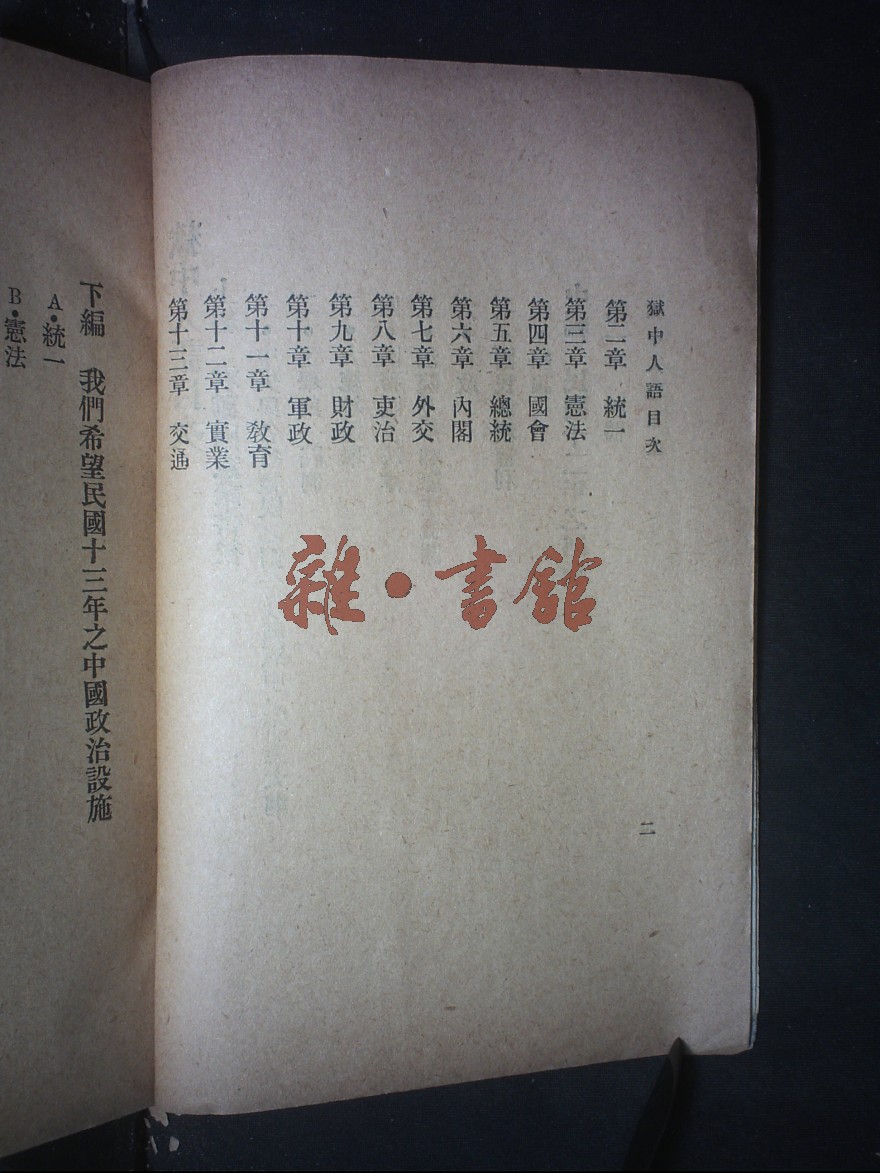 獄中人語目次
第二章 統一
第三章 憲法
第四章 國會
第五章 總統
第六章 內閣
第七章 外交
第八章 吏治
第九章 財政
第十章 軍政
第十一章 敎育
第十二章 實業
第十三章 交通
二
雜·書館
下編 我們希望民國十三年之中國政治設施
A·統一
B·憲法